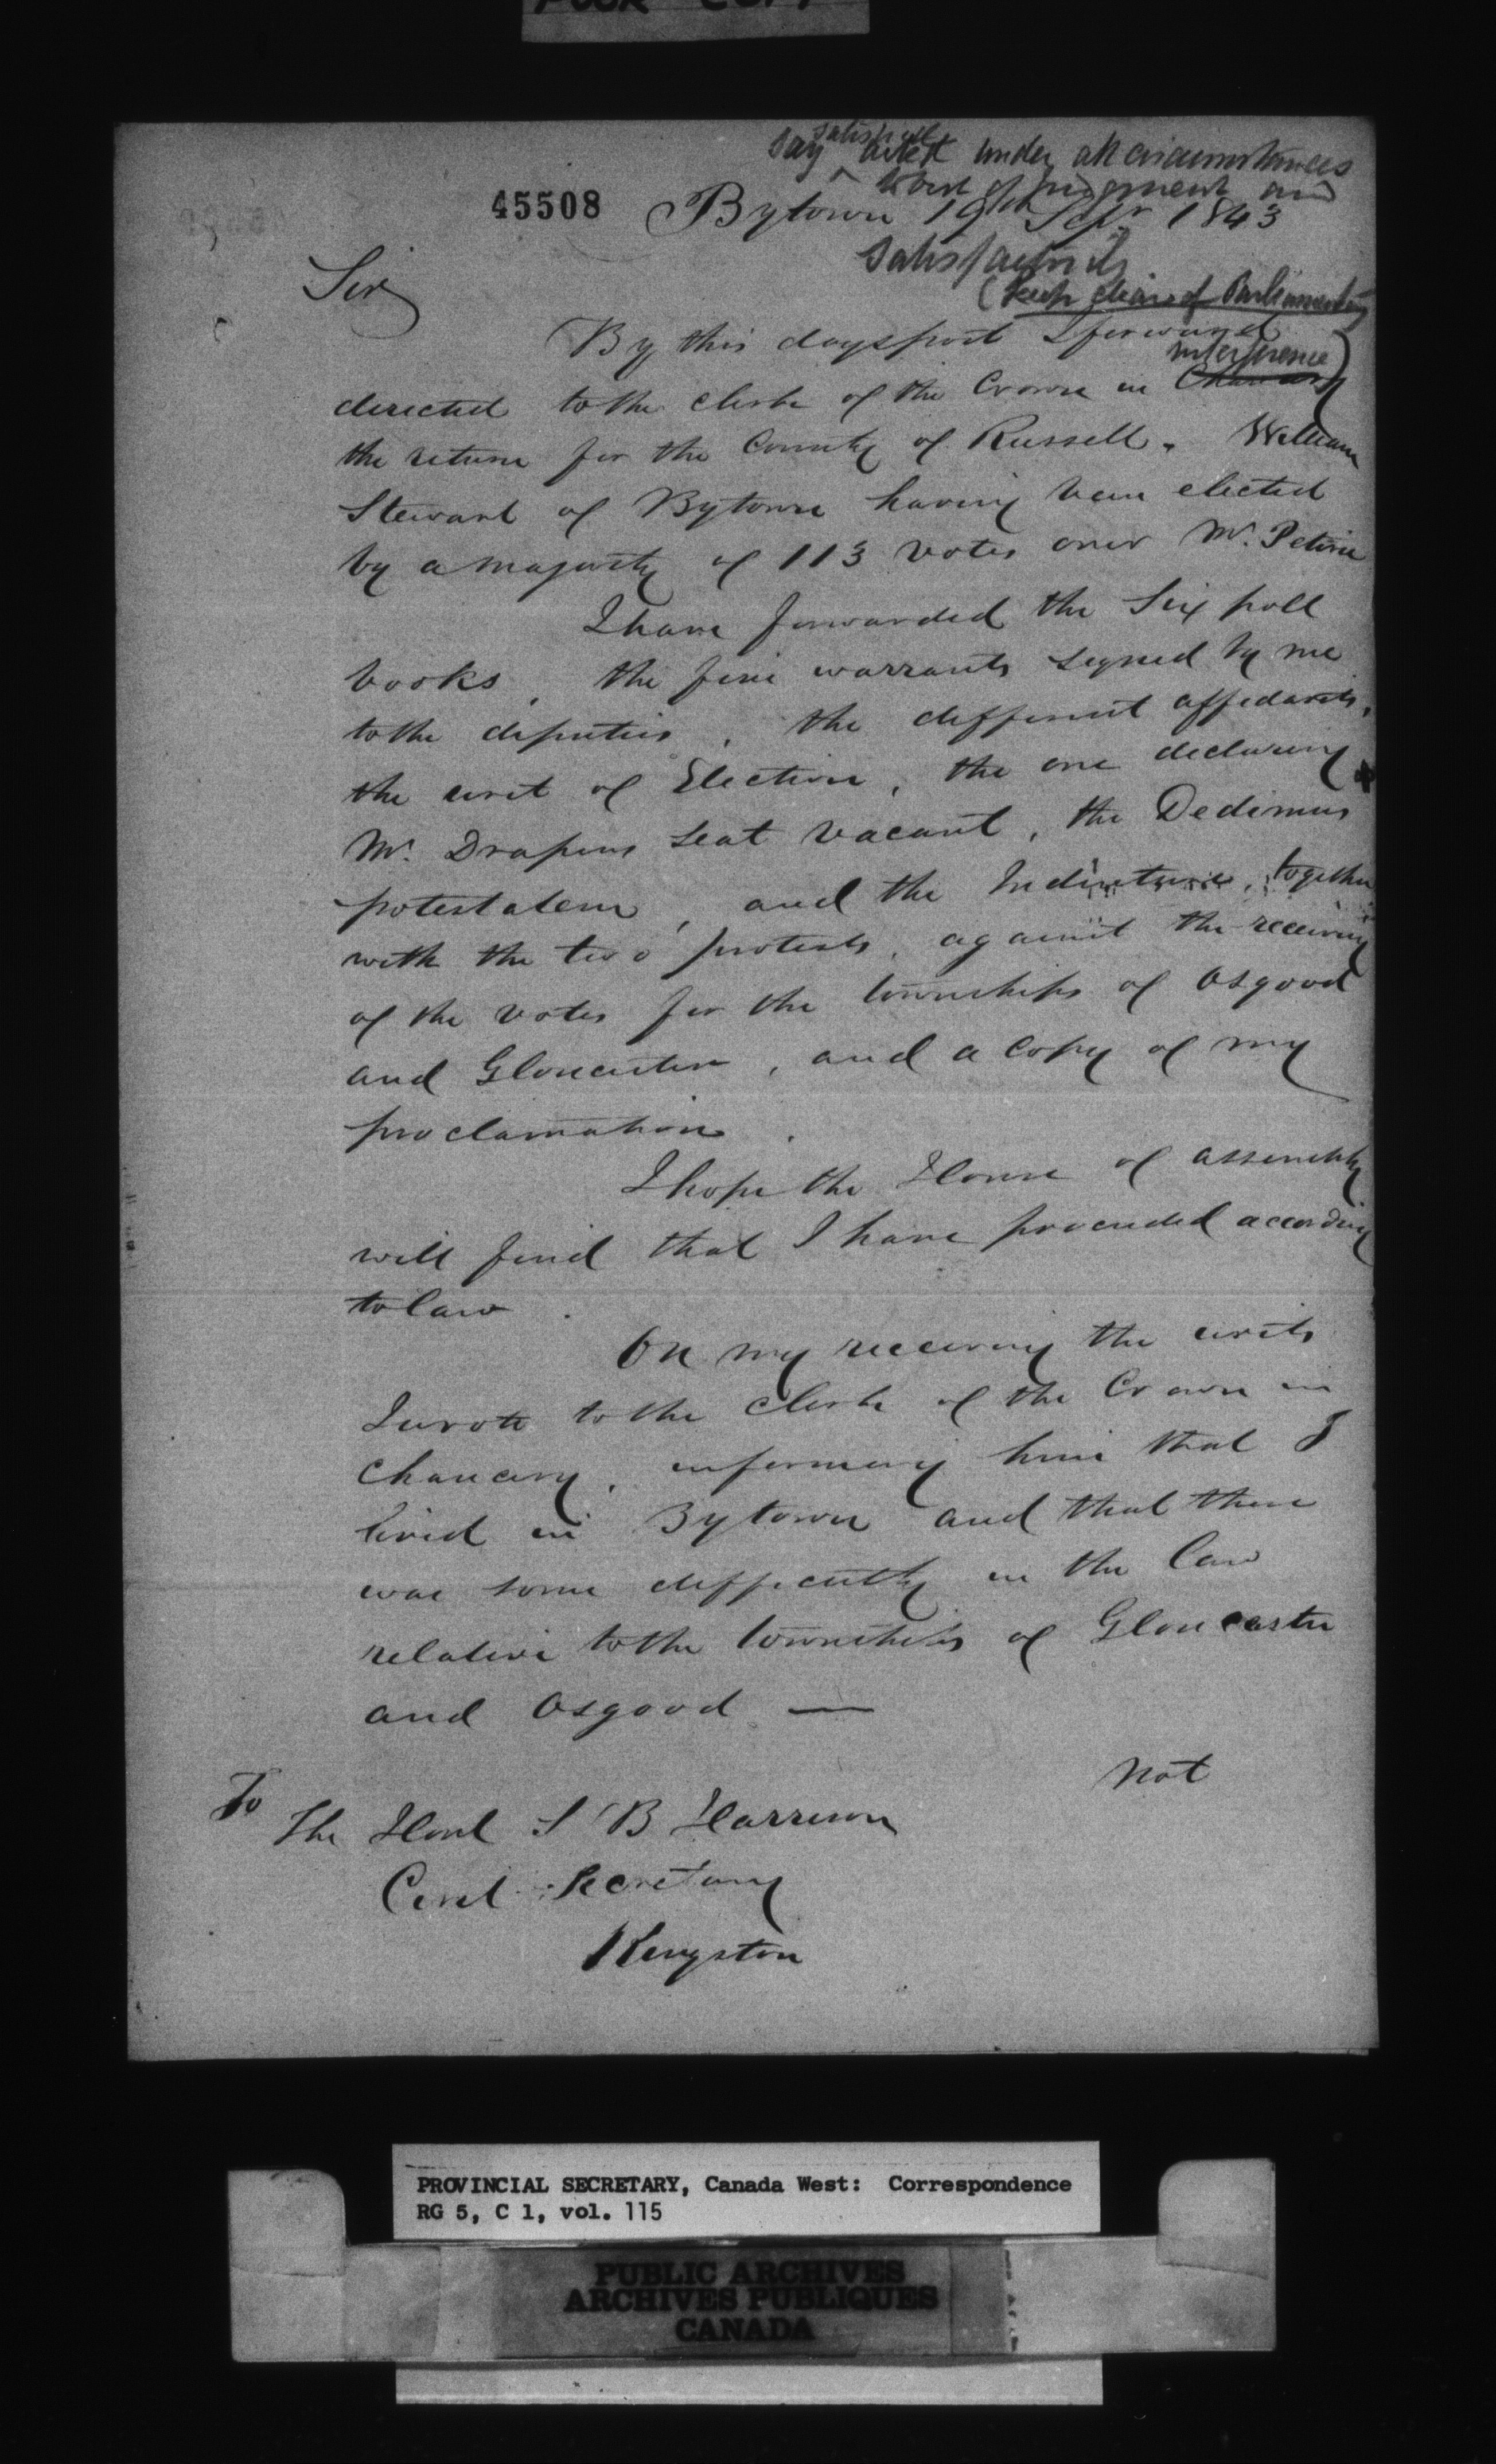 POOR COPY
say satisfied acted under all circumstances
to best of judgment and
45508 Bytown 19th Sept 1843
satisfactorily
(Keep clear of Parliamentary
Sir
By this days post I forward
interference)
directed to the clerk of the Crown in Chancery
the return for the County of Russell. William
Stewart of Bytown having been elected
by a majority of 113 votes over Mr. Petrie
I have forwarded the Six poll
books, the five warrants signed by me
to the deputies, the different affidavits,
the writ of Election, the one declaring
Mr. Drapers seat vacant, the Dedimus
potestatem, and the Indenture, together
with the two protests, against the receiving
of the votes for the townships of Osgood
and Gloucester, and a copy of my
proclamation.
I hope the House of assembly
will find that I have proceeded according
to law.
On my receiving the writs
I wrote to the clerk of the Crown in
Chancery, informing him that I
lived in Bytown and that there
was some difficulty in the law
relative to the townships of Gloucester
and Osgood —
not
To
The Honl S B Harrison
Civil Secretary
Kingston
PROVINCIAL SECRETARY, Canada West: Correspondence
RG 5, C 1, vol. 115
PUBLIC ARCHIVES
ARCHIVES PUBLIQUES
CANADA